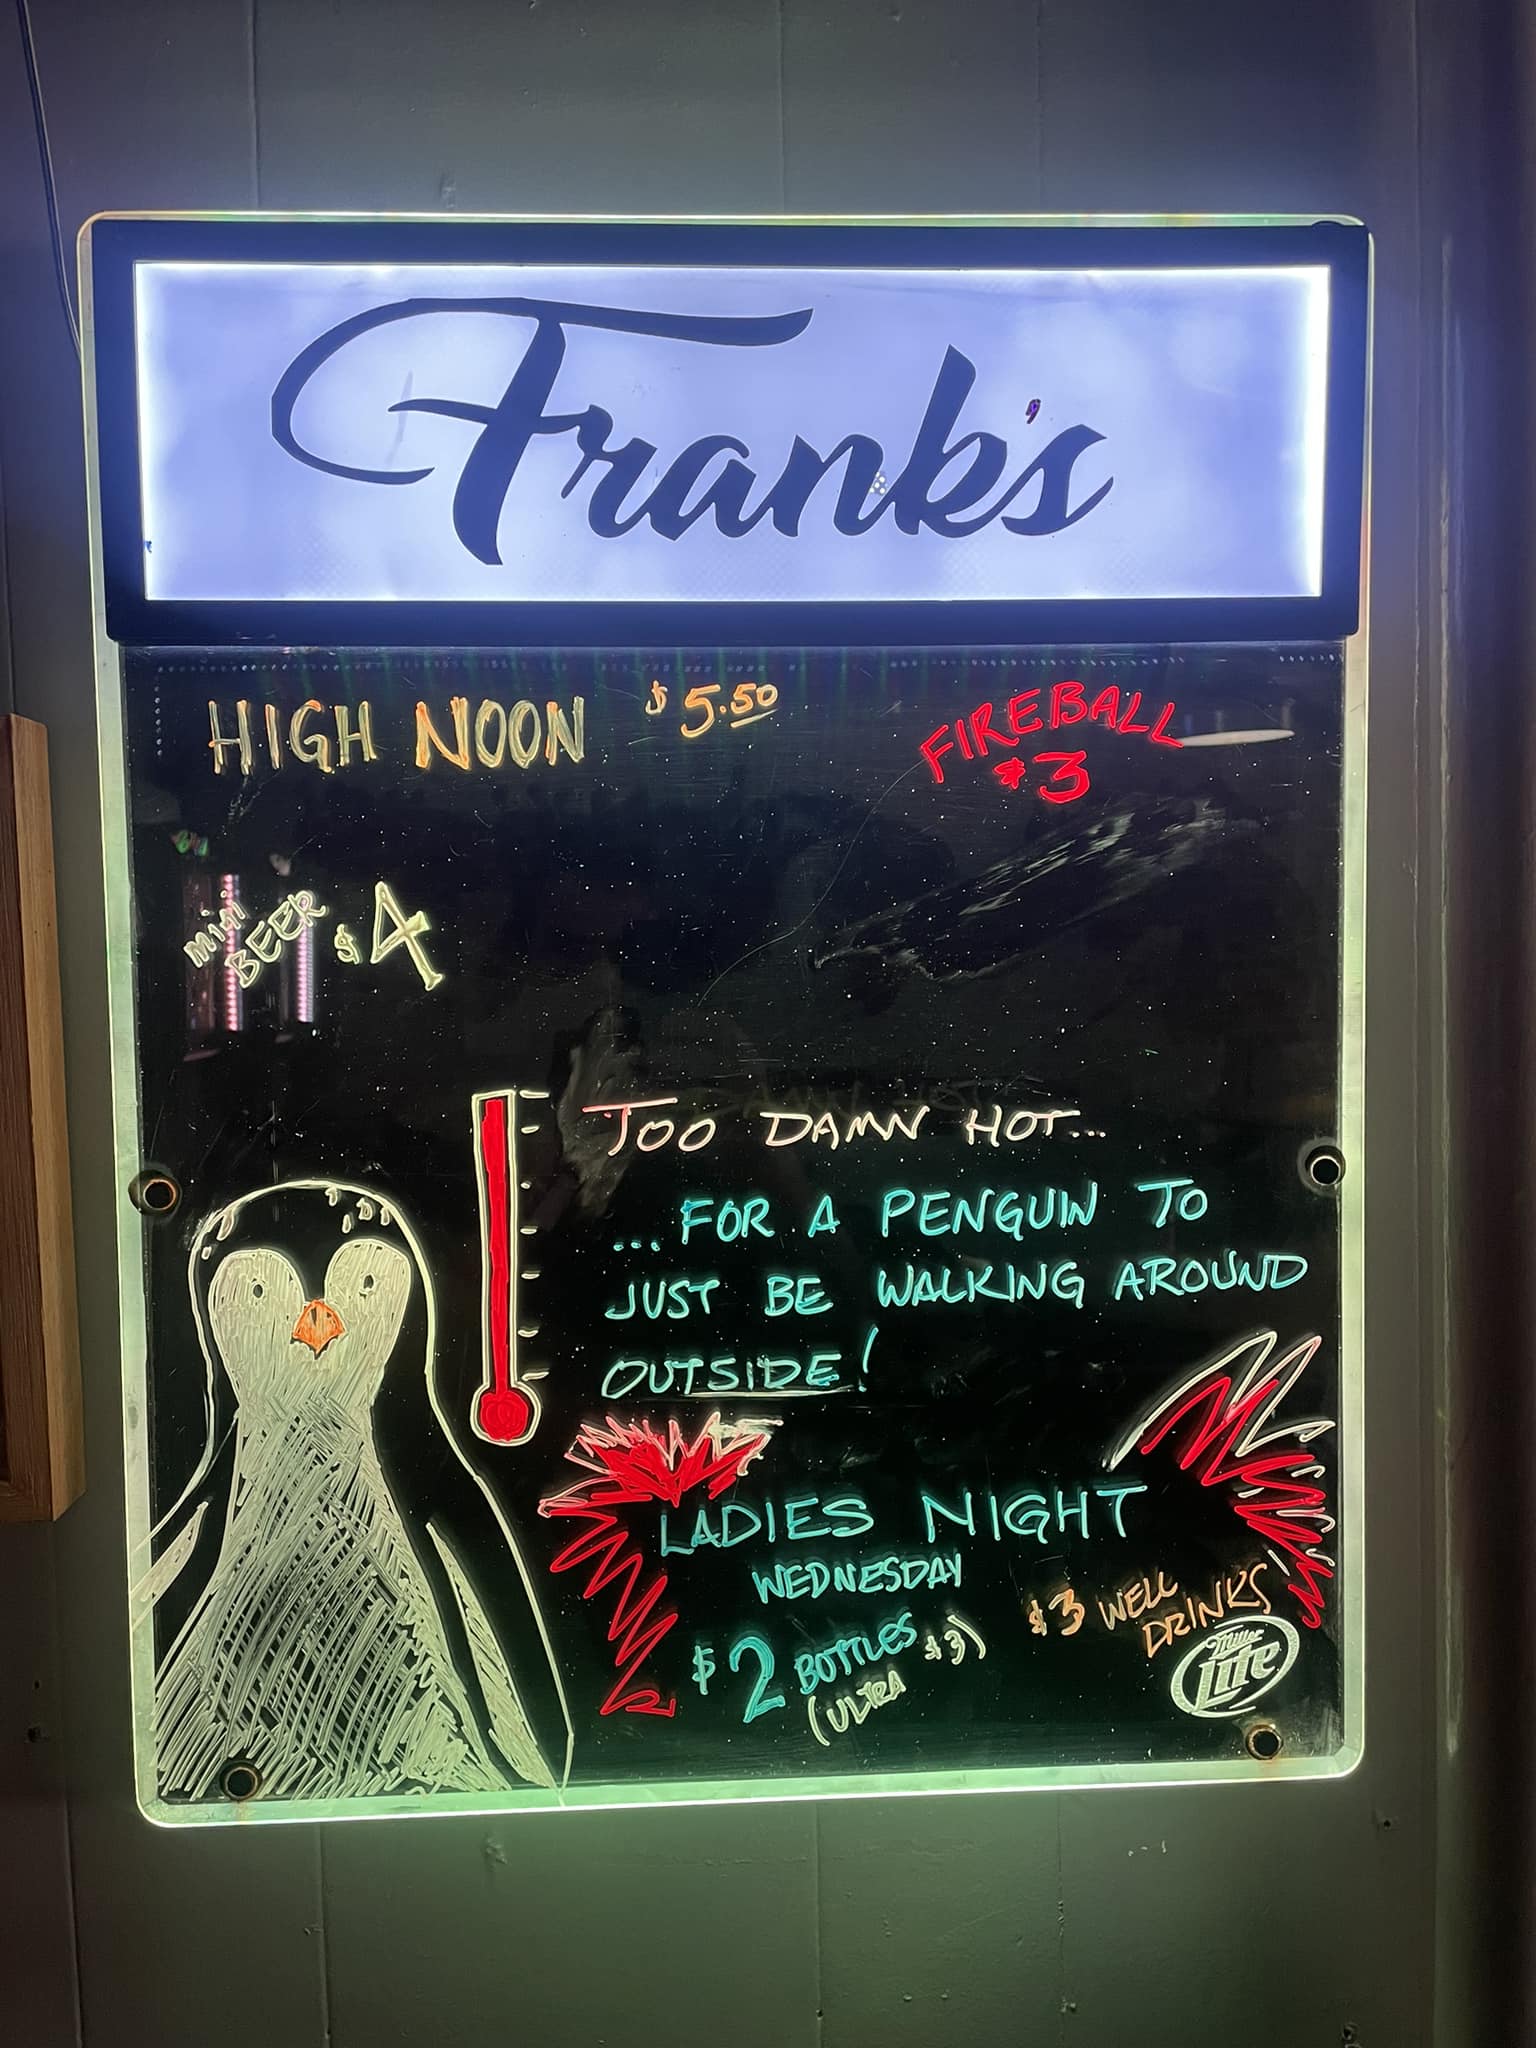 Frank's
HIGH NOON $5.50
FIREBALL
$3
mini
BEER $4
TOO DAMN HOT...
...FOR A PENGUIN TO
JUST BE WALKING AROUND
OUTSIDE!
LADIES NIGHT
WEDNESDAY
$2 BOTTLES
(ULTRA $3)
$3 WELL
DRINKS
Miller
Lite